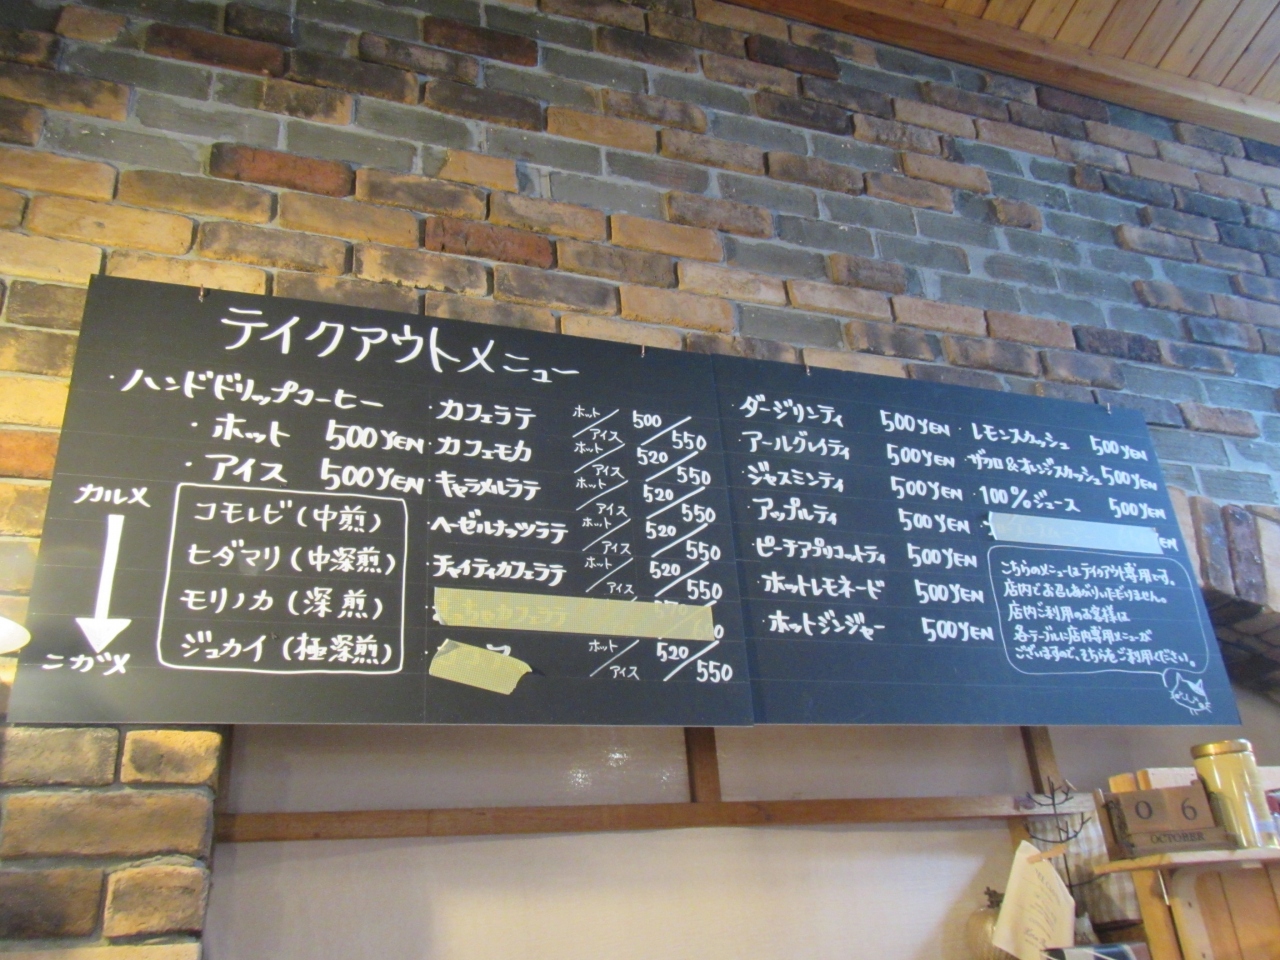 テイクアウトメニュー
・ハンドドリップコーヒー
・ホット 500YEN
・アイス 500YEN
カルメ
ニガメ
コモレビ(中煎)
ヒダマリ(中深煎)
モリノカ(深煎)
ジュカイ(極深煎)
・カフェラテ ホット/アイス 500/550
・カフェモカ ホット/アイス 520/550
・キャラメルラテ ホット/アイス 520/550
・ヘーゼルナッツラテ ホット/アイス 520/550
・チャイティカフェラテ ホット/アイス 520/550
ちゃカフェラテ
ホット/アイス 520/550
・ダージリンティ 500YEN
・アールグレイティ 500YEN
・ジャスミンティ 500YEN
・アップルティ 500YEN
・ピーチアプリコットティ 500YEN
・ホットレモネード 500YEN
・ホットジンジャー 500YEN
・レモンスカッシュ 500YEN
・ザクロ&オレンジスカッシュ 500YEN
・100%ジュース 500YEN
こちらのメニューはテイクアウト専用です。
店内でお召しあがりいただけません。
店内ご利用のお客様は
各テーブルに店内専用メニューが
ございますので、そちらをご利用ください。
0 6
OCTOBER